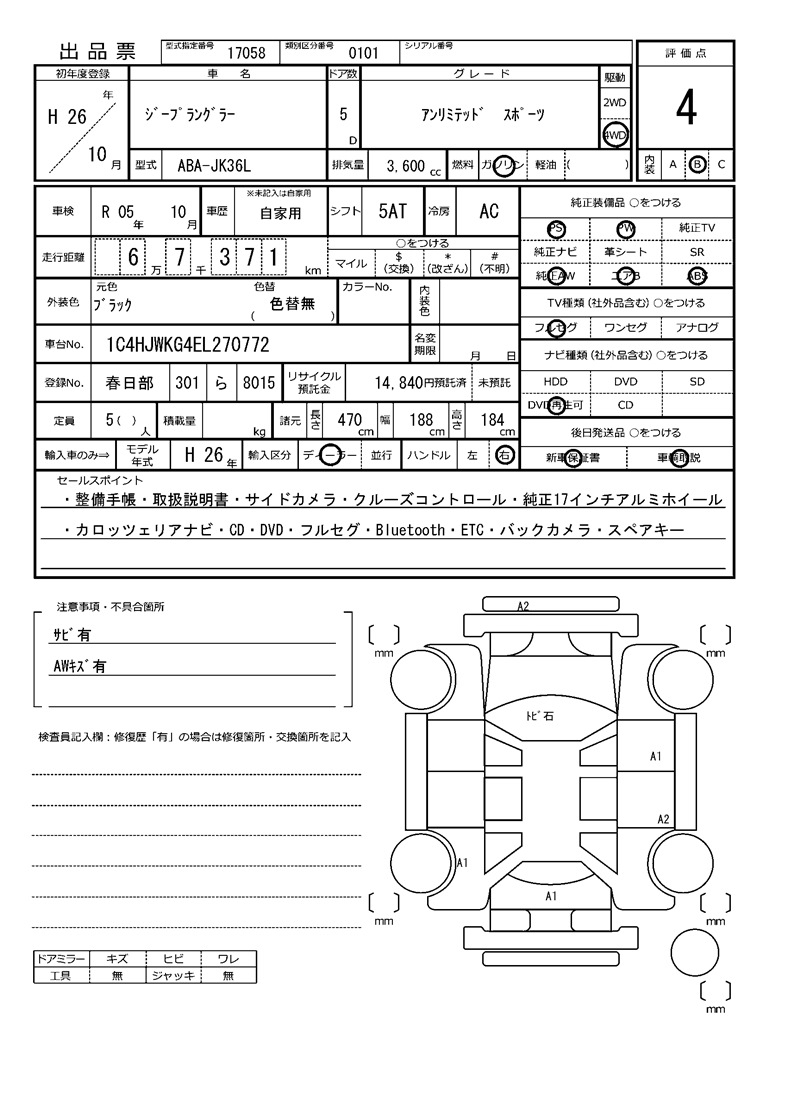 出品票 型式指定番号 17058 類別区分番号 0101 シリアル番号 評価点
初年度登録 車名 ドア数 グレード 駆動
H 26 年 10 月 ジープラングラー 5 D アンリミテッド スポーツ 2WD 4WD 4
型式 ABA-JK36L 排気量 3,600 cc 燃料 ガソリン 軽油 ( ) 内装 A B C
車検 R 05 年 10 月 車歴 ※未記入は自家用 自家用 シフト 5AT 冷房 AC
純正装備品 ○をつける
PS PW 純正TV
走行距離 6 万 7 千 3 7 1 km ○をつける
マイル $ (交換) * (改ざん) # (不明)
純正ナビ 革シート SR
純正AW エアB ABS
外装色 元色 ブラック 色替 ( 色替無 ) カラーNo. 内装色
TV種類(社外品含む) ○をつける
フルセグ ワンセグ アナログ
車台No. 1C4HJWKG4EL270772 名変期限 月 日
ナビ種類(社外品含む) ○をつける
HDD DVD SD
登録No. 春日部 301 ら 8015 リサイクル預託金 14,840円預託済 未預託
DVD再生可 CD
定員 5( ) 人 積載量 kg 諸元 長さ 470 cm 幅 188 cm 高さ 184 cm
後日発送品 ○をつける
輸入車のみ⇒ モデル年式 H 26 年 輸入区分 ディーラー 並行 ハンドル 左 右
新車保証書 車輌取説
セールスポイント
・整備手帳・取扱説明書・サイドカメラ・クルーズコントロール・純正17インチアルミホイール
・カロッツェリアナビ・CD・DVD・フルセグ・Bluetooth・ETC・バックカメラ・スペアキー
注意事項・不具合箇所
サビ有
AWキズ有
検査員記入欄:修復歴「有」の場合は修復箇所・交換箇所を記入
A2
mm mm
トビ石
A1
A2
A1
A1
mm mm
mm
ドアミラー キズ ヒビ ワレ
工具 無 ジャッキ 無